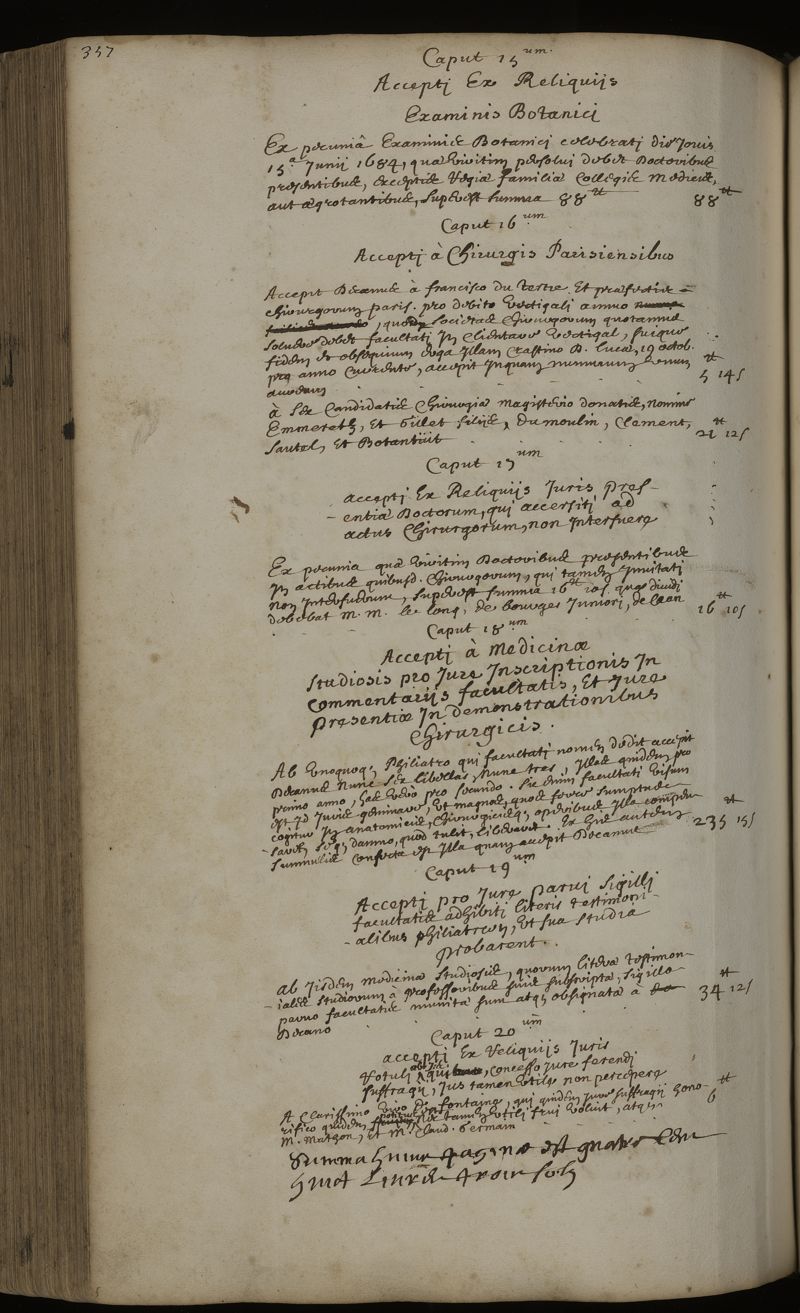 357
Caput 15um.
Acceptj Ex Reliquijs
Examinis Botanicj
Ex pecuniâ Examinis Botanicj celebratj die Jovis
15a Junij 1684, quæ viritim persolui debet Doctoribus
presentibus, exceptis regiæ familiæ Collegis Medicis,
aut ægrotantibus, superest summa 88tt 88tt
Caput 16um
Acceptj à Chirurgis Parisiensibus
Accepit Decanus à francisco du Tertre Et præfectis
chirurgorum paris. pro debito vectigali annuo
, quod societas Chirurgorum quotannis
soluere debet facultati In Clientare vectigal, suique
fidem et obsequium erga Illam Crastino D. Lucæ, 19 octob.
pro anno Currente, accepit Inquam nummum Unum
aureum 5tt 14s
à sex Candidatis Chirurgiæ Magisterio donatis, nomine
Emmeretz, Et Gillet filijs, Dumoulin, Clement,
Sautel, Et 21tt 12s
Caput 17um
acceptj Ex Reliquijs Juris Pres-
-entiæ Doctorum, qui accersitj ad
actus Chirurgorum, non Interfuere
Ex pecunia quæ viritim Doctoribus presentibus
In actibus quibusd. Chirurgorum, qui tamen Inuitati
non Interfuerunt, superest summa 16tt 10s. quæ diuidi
debebat M. M. le long, de bourges Juniori, de lean 16tt 10s
Caput 18um
Acceptj à Medicinæ
Studiosis pro Jure Inscriptionis In
Commentarijs facultatis, Et Jure
Presentiæ In Demonstrationibus
Chirurgicis.
Ab Unoquoq; Philiatro qui facultati nomen dedit accepit
Decanus Nunc sex libellas, Nunc tres, Illas quidem pro
primo anno, has vero pro secundo. sic enim facultati Visum
est Id Juris geminare, Ut magnos, quos ferre sumptus
cogitur In anatomicis, Chirurgicisq; operibus Illa compen-
-saret, seq; damno, quod tulit, liberaret. Ex his autem
summulis Confecta est Illa quam accepit Decanus 235tt 15s
Caput 19um
Acceptj pro Jure parui Sigilli
facultatis adhibiti literis testimoni-
-alibus philiatron, Ut sua studia
Probarent.
ab Jisdem Medicinæ Studiosis, quorum literæ testimon-
-iales studiorum à Professoribus suis subscriptæ, sigillo
paruo facultatis munitæ sunt atq; obsignatæ à
Decano 34tt 12s
Caput 20um
acceptj Ex Reliquijs Juris
rotulj qui, concesso Jure ferendi
suffragij, Jus tamen Utile non percipere
A Clarissimo Viro De fontaine, qui quidem Jure suffragij hono-
rifico quidem tamen Utili frui voluit, atq;
M. Mathon, et M. Claud. Germain 6tt
Summa huius paginæ est quatre Cen
huict Liures trois sols